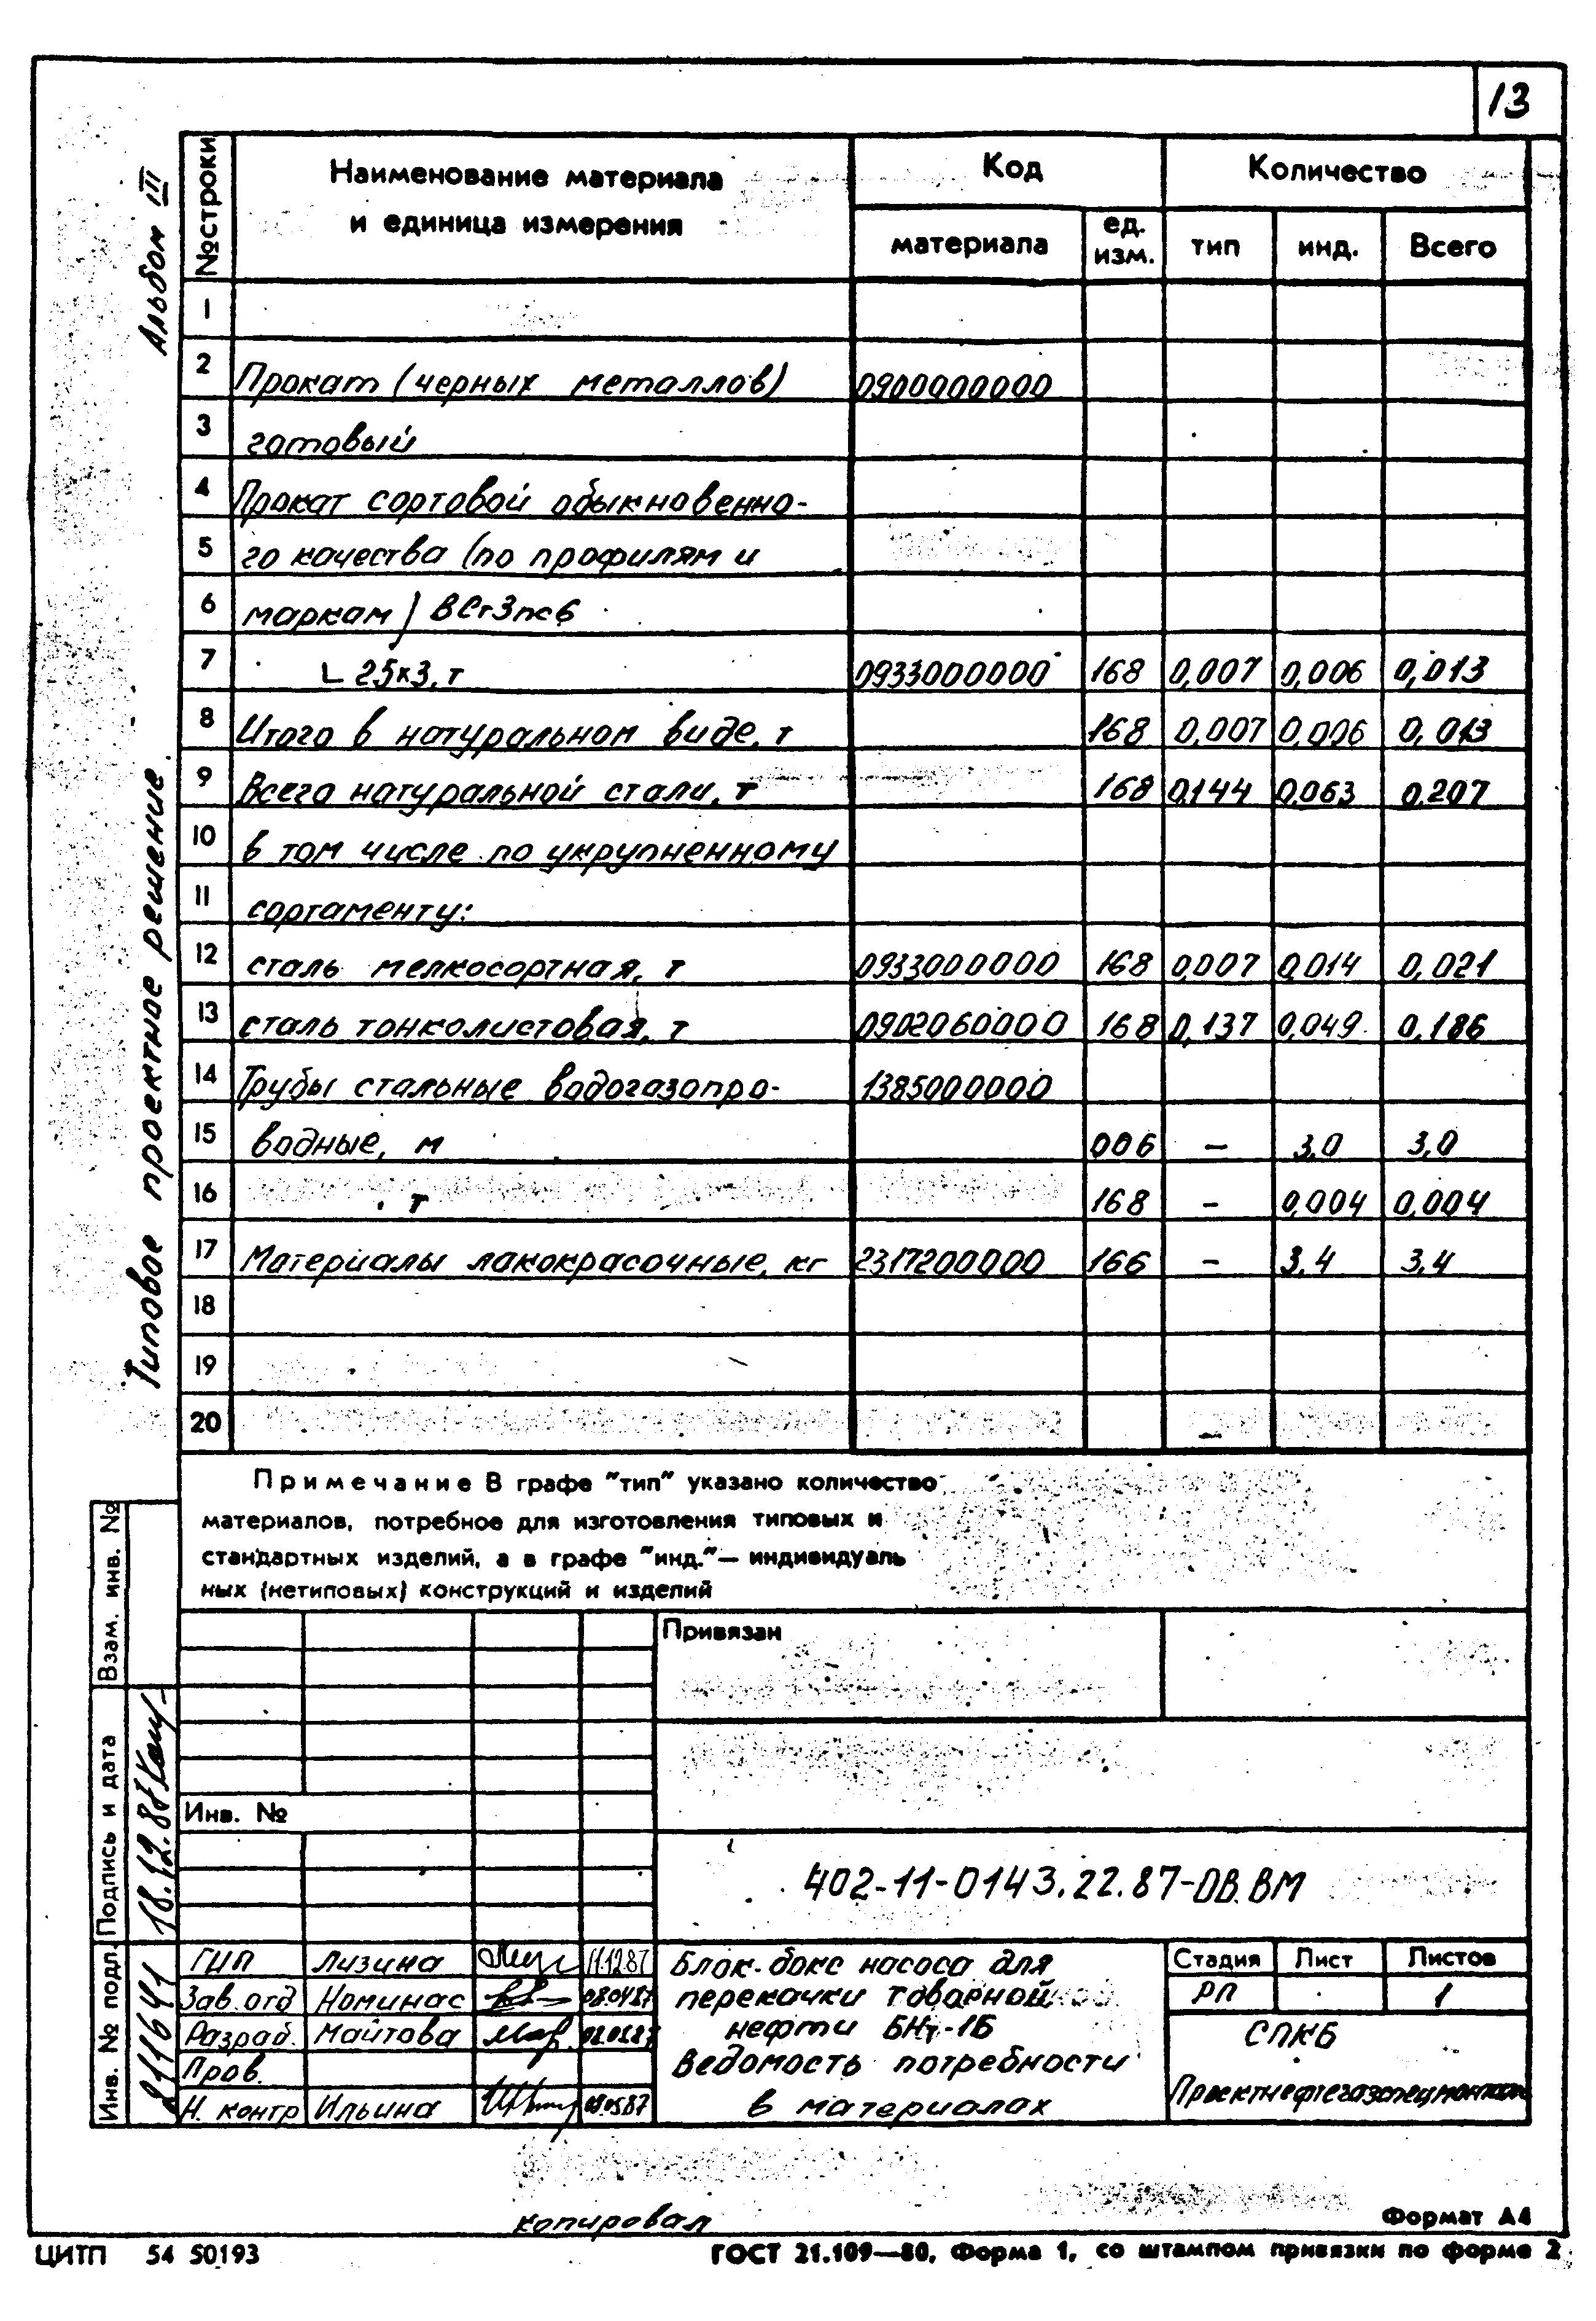 13
Альбом III
Типовое проектное решение
№ строки
Наименование материала
и единица измерения
Код
Количество
материала
ед.
изм.
тип
инд.
Всего
1
2 Прокат (черных металлов) 0900000000
3 готовый
4 Прокат сортовой обыкновенно-
5 го качества (по профилям и
6 маркам) ВСт3пс6
7 L 25х3, т 0933000000 168 0,007 0,006 0,013
8 Итого в натуральном виде, т 168 0,007 0,006 0,013
9 Всего натуральной стали, т 168 0,144 0,063 0,207
10 в том числе по укрупненному
11 сортаменту:
12 сталь мелкосортная, т 0933000000 168 0,007 0,014 0,021
13 сталь тонколистовая, т 0902060000 168 0,137 0,049 0,186
14 Трубы стальные водогазопро- 1385000000
15 водные, м 006 – 3,0 3,0
16 т 168 – 0,004 0,004
17 Материалы лакокрасочные, кг 2317200000 166 – 3,4 3,4
18
19
20
Примечание В графе "тип" указано количество
материалов, потребное для изготовления типовых и
стандартных изделий, а в графе "инд."— индивидуаль
ных (нетиповых) конструкций и изделий
Взам. инв. №
Подпись и дата
18.12.87
Инв. № подл.
Привязан
Инв. №
402-11-0143.22.87-ОВ.ВМ
ГИП Лизина 11.12.87
Зав. отд Номинас 08.04.87
Разраб. Майтова
Пров.
Н. контр Ильина
Блок-бокс насоса для
перекачки товарной
нефти БНт-1Б
Ведомость потребности
в материалах
Стадия Лист Листов
РП 1
СПКБ
Проектнефтегазспецмонтаж
копировал
Формат А4
ЦИТП 54 50193
ГОСТ 21.109—80, Форма 1, со штампом привязки по форме 2